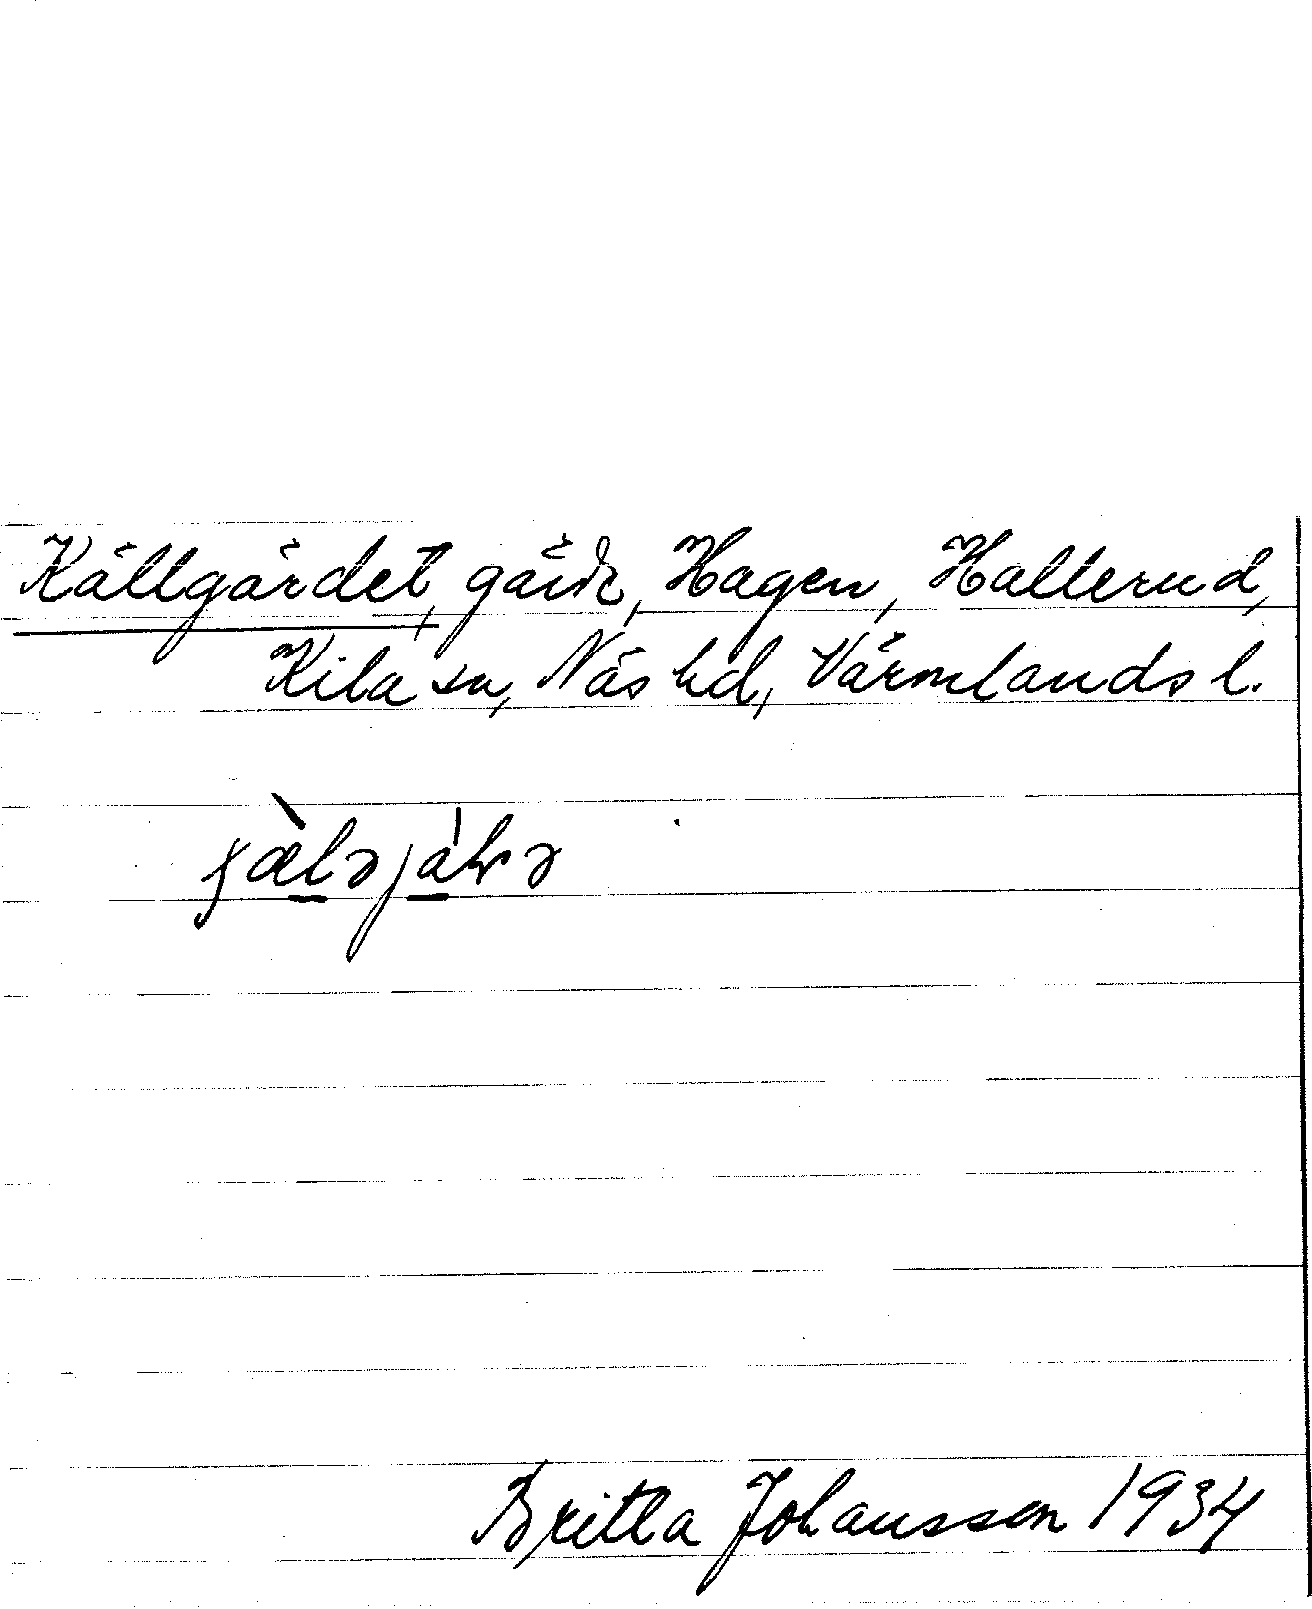 Källgärdet, gärde, Hagen, Hallerud,
Kila sn, Näs hd, Värmlands l.
Britta Johansson 1934